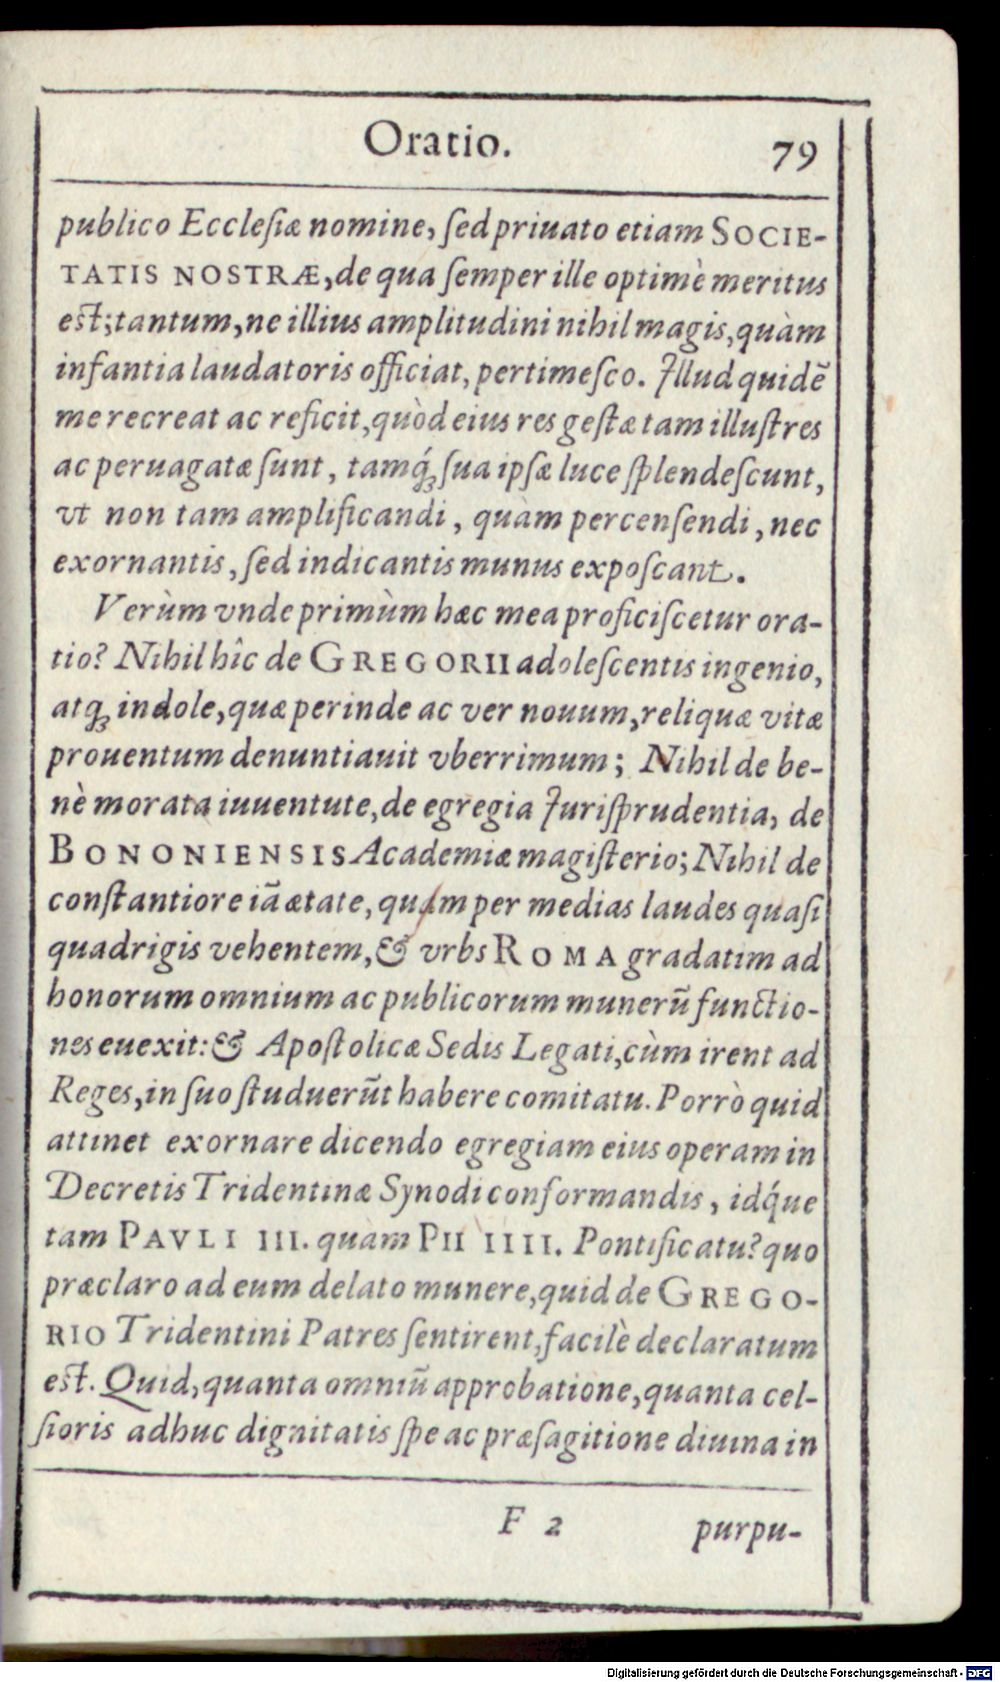 Oratio. 79
publico Eccleſiæ nomine, ſed priuato etiam SOCIE-
TATIS NOSTRÆ, de qua ſemper ille optimè meritus
eſt; tantum, ne illius amplitudini nihil magis, quàm
infantia laudatoris officiat, pertimeſco. Illud quidẽ
me recreat ac reficit, quòd eius res geſtæ tam illuſtres
ac peruagatæ ſunt, tamq́; ſua ipſæ luce ſplendeſcunt,
vt non tam amplificandi, quàm percenſendi, nec
exornantis, ſed indicantis munus expoſcant.
Verùm vnde primùm hæc mea proficiſcetur ora-
tio? Nihil hîc de GREGORII adoleſcentis ingenio,
atq; indole, quæ perinde ac ver nouum, reliquæ vitæ
prouentum denuntiauit vberrimum; Nihil de be-
nè morata iuuentute, de egregia Juriſprudentia, de
BONONIENSIS Academiæ magiſterio; Nihil de
conſtantiore iã ætate, quam per medias laudes quaſi
quadrigis vehentem, & vrbs ROMA gradatim ad
honorum omnium ac publicorum munerũ functio-
nes euexit: & Apoſtolicæ Sedis Legati, cùm irent ad
Reges, in ſuo ſtuduerũt habere comitatu. Porrò quid
attinet exornare dicendo egregiam eius operam in
Decretis Tridentinæ Synodi conformandis, idq́ue
tam PAVLI III. quàm PII IIII. Pontificatu? quo
præclaro ad eum delato munere, quid de GREGO-
RIO Tridentini Patres ſentirent, facilè declaratum
eſt. Quid, quanta omniũ approbatione, quanta cel-
ſioris adhuc dignitatis ſpe ac præſagitione diuina in
F 2 purpu-
Digitalisierung gefördert durch die Deutsche Forschungsgemeinschaft - DFG